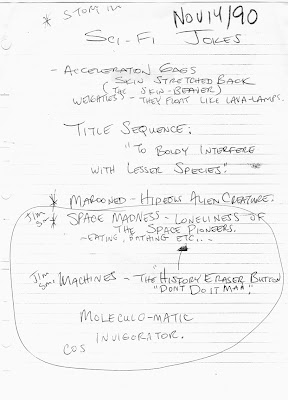 * STOM IN
NOV 14/90
SCI-FI JOKES
- ACCELERATION GAGS
(SKIN STRETCHED BACK
(THE SKIN-BEAVER)
WEIGHTLESS - THEY FLOAT LIKE LAVA-LAMPS.
TITLE SEQUENCE:
"TO BOLDY INTERFERE
WITH LESSER SPECIES"
* MAROONED - HIDEOUS ALIEN CREATURE.
JIM SM. * SPACE MADNESS - LONELINESS OF
THE SPACE PIONEERS.
- EATING, BATHING ETC...
JIM SM. MACHINES - THE "HISTORY ERASER BUTTON
"DON'T DO IT MAN."
MOLECULO-MATIC
INVIGORATOR.
COS